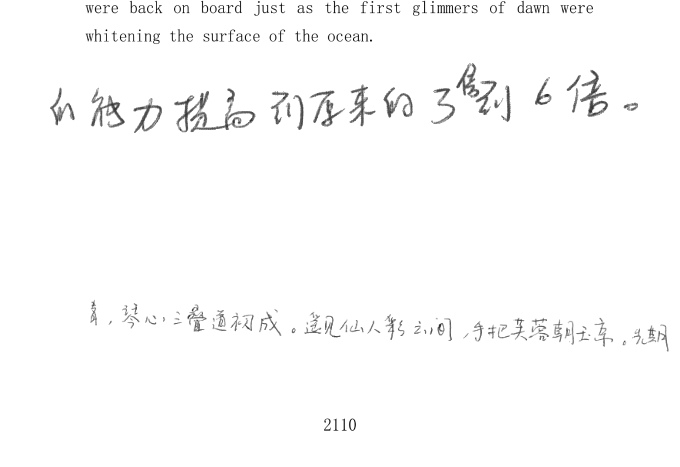 were back on board just as the first glimmers of dawn were
whitening the surface of the ocean.
的能力提高到原来的3倍到6倍。
,琴心三叠道初成。遥见仙人彩云间,手把芙蓉朝玉京。先期
2110